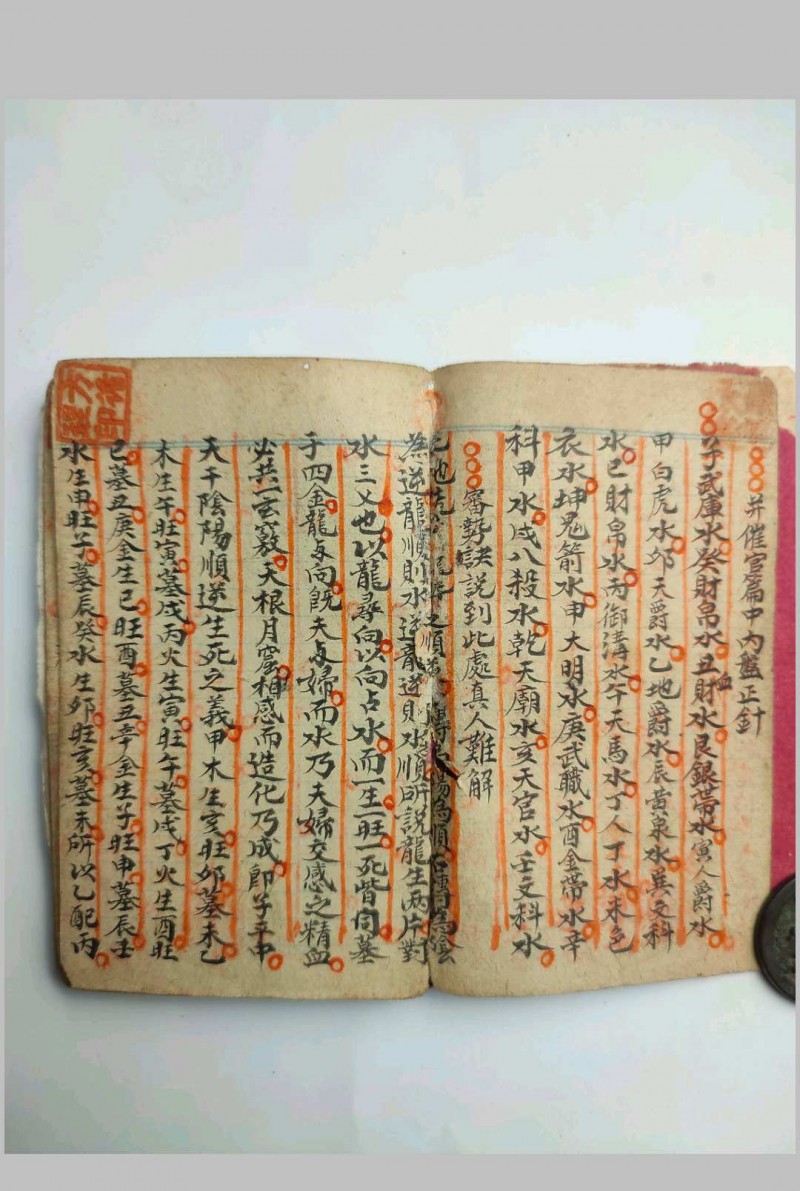 并催官篇中內盤正針
子武庫水癸財帛水丑血財水艮銀帶水寅人爵水
甲白虎水卯天爵水乙地爵水辰黄泉水巽文科
水巳財帛水丙御溝水午天馬水丁人丁水未色
衣水坤鬼箭水申大明水庚武職水酉金帶水辛
科甲水戌八殺水乾天廟水亥天官水壬文科水
審勢訣說到此處真人難解
之順 為順右轉為陰
為逆龍順則水逆龍逆則水順所說龍生兩片對
水三叉也以龍尋向以向占水而一生一旺一死皆同墓
于四金龍与向既夫与婦而水乃夫婦交感之精血
必共一玄竅天根月窟相感而造化乃成即子平中
天干陰陽順逆生死之義甲木生亥旺卯墓未乙
木生午旺寅墓戌丙火生寅旺午墓戌丁火生酉旺
巳墓丑庚金生巳旺酉墓丑辛金生子旺申墓辰壬
水生申旺子墓辰癸水生卯旺亥墓未所以乙配丙